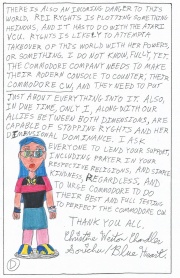 THERE IS ALSO AN INCOMING DANGER TO THIS
WORLD. REI RIGHTS IS PLOTTING SOMETHING
HEINOUS, AND IT HAS TO DO WITH THE ATARI
VCU. RIGHTS IS LIKELY TO ATTEMPT A
TAKEOVER OF THIS WORLD WITH HER POWERS,
OR SOMETHING. I DO NOT KNOW, FULLY, YET.
THE COMMODORE COMPANY NEEDS TO MAKE
THEIR MODERN CONSOLE TO COUNTER; THEIR
COMMODORE CW, AND THEY NEED TO PUT
JUST ABOUT EVERYTHING INTO IT. ALSO,
IN DUE TIME, ONLY I, ALONG WITH OUR
ALLIES BETWEEN BOTH DIMENSIONS, ARE
CAPABLE OF STOPPING RIGHTS AND HER
DIMENSIONAL DOMINANCE. I ASK
EVERYONE TO LEND YOUR SUPPORT,
INCLUDING PRAYER IN YOUR
RESPECTIVE RELIGIONS, AND SHARE
KINDNESS, REGARDLESS, AND
TO URGE COMMODORE TO DO
THEIR BEST AND FULL TESTING
TO PERFECT THE COMMODORE CW.
THANK YOU ALL,
Christine Weston Chandler
Sonichu / Blue Heart